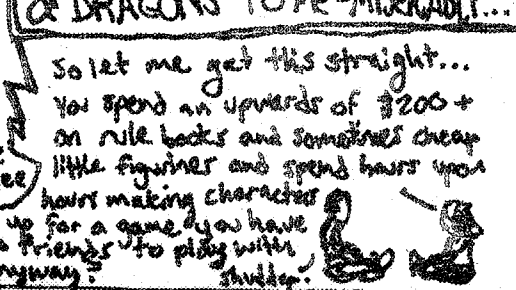 & DRAGONS TO ME-MISERABLY...
So let me get this straight...
You spend an upwards of $200+
on rule books and sometimes cheap
little figurines and spend hours upon
hours making characters
up for a game you have
friends to play with
anyway?
shudder